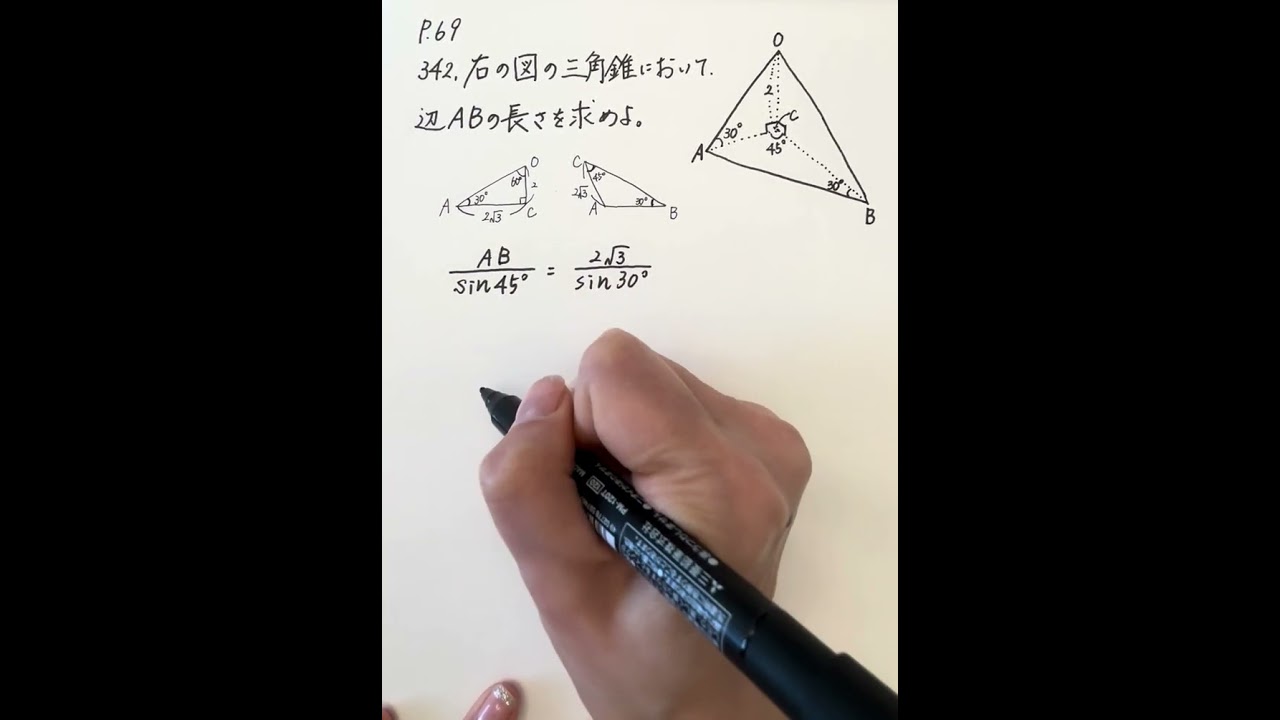 P.69
342. 右の図の三角錐において.
辺ABの長さを求めよ。
O
2
C
30°
45°
A
30°
B
O
60°
2
30°
A
2√3
C
C
45°
2√3
30°
A
B
AB/sin45° = 2√3/sin30°
PM-120T